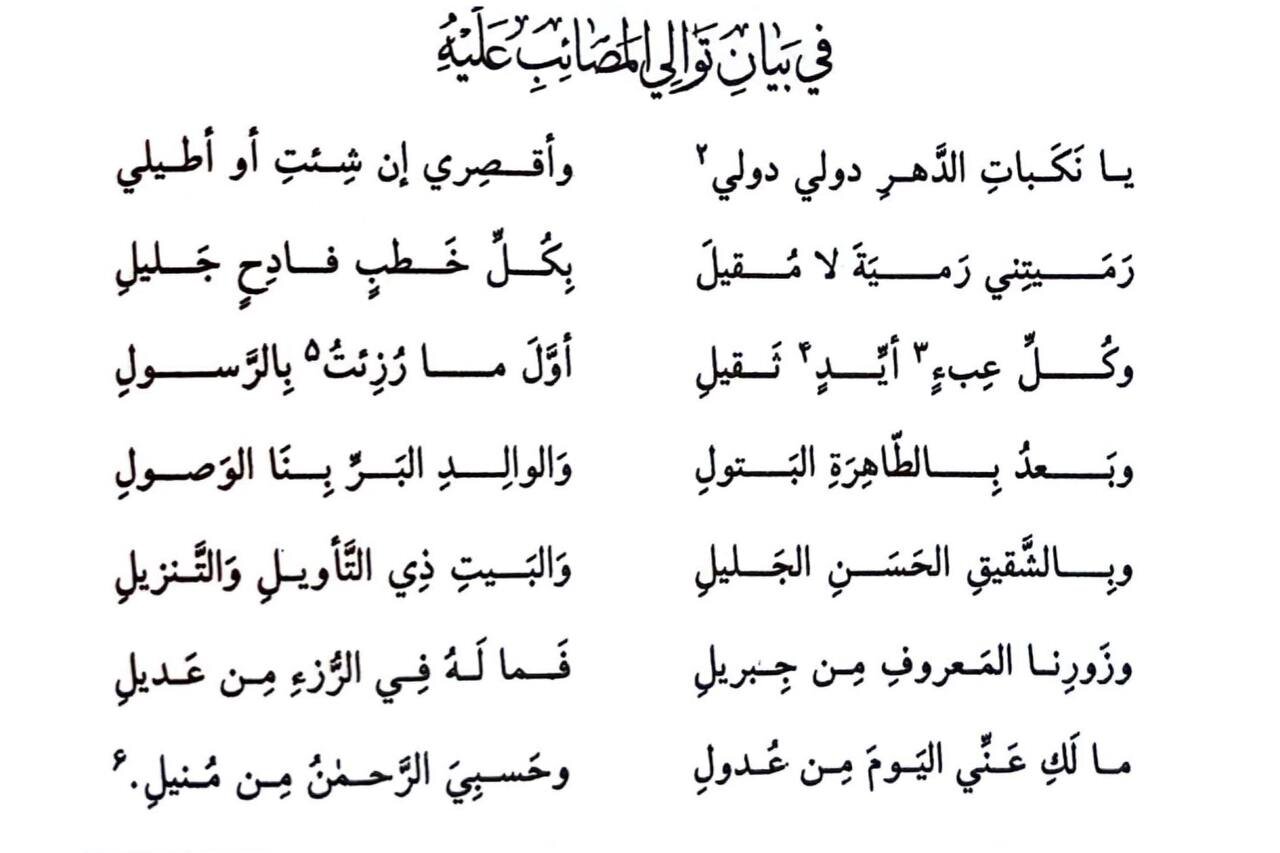 في بَيَانِ تَوَالِي المَصَائِبِ عَلَيْهِ
يا نَكَباتِ الدَّهرِ دولي دولي۲ وأقصِري إن شِئتِ أو أطيلي
رَمَيتِني رَميَةَ لا مُقيلَ بِكُلِّ خَطبٍ فادِحٍ جَليلِ
وكُلِّ عِبءٍ۳ أيِّدٍ۴ ثَقيلِ أوَّلَ ما رُزِئتُ۵ بِالرَّسولِ
وبَعدُ بِالطّاهِرَةِ البَتولِ وَالوالِدِ البَرِّ بِنَا الوَصولِ
وبِالشَّقيقِ الحَسَنِ الجَليلِ وَالبَيتِ ذِي التَّأويلِ وَالتَّنزيلِ
وزَورِنا المَعروفِ مِن جِبريلِ فَما لَهُ فِي الرُّزءِ مِن عَديلِ
ما لَكِ عَنِّي اليَومَ مِن عُدولِ وحَسبِيَ الرَّحمٰنُ مِن مُنيلِ.۶